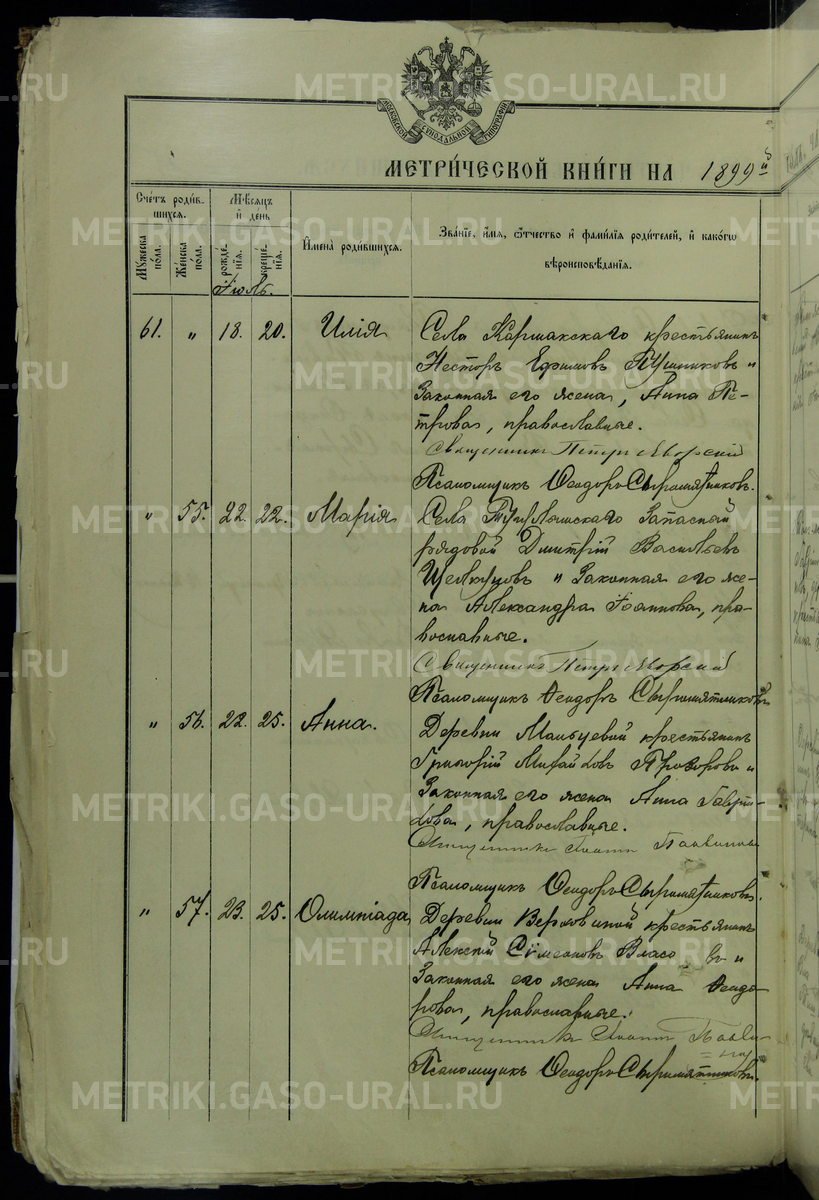 МОСКОВСКОЙ СѴНОДАЛЬНОЙ ТИПОГРАФІИ
МЕТРИ́ЧЕСКОЙ КНИ́ГИ НА 1899й
Сче́тъ роди́в-
шихся.
Му́жеска по́ла.
Же́нска по́ла.
Мѣ́сяцъ
и҆ де́нь
рожде́-
нїѧ.
креще́-
нїѧ.
И҆мена̀ роди́вшихся.
Зва́нїе, и҆́мя, ѻ҆́тчество и҆ фами́лїя роди́телей, и҆ како́гѡ
вѣроисповѣ́данїя.
Іюль.
61. " 18. 20. Илія Села Кармакскаго крестьянинъ
Несторъ Ефимовъ и
Законная его жена, Анна Пе-
трова, православные.
Священникъ Петръ Яворскій
Псаломщикъ Ѳеодоръ Сыромятниковъ.
" 55. 22. 22. Марія Села Запасный
рядовой Дмитрій Васильевъ
и Законная его же-
на Александра Іоаннова, пра-
вославные.
Священникъ Петръ Яворскій
Псаломщикъ Ѳеодоръ Сыромятниковъ
" 56. 22. 25. Анна. Деревни Мальцевой крестьянинъ
Григорій Михайловъ Прохоровъ и
Законная его жена Анна Гаври-
лова, православные.
Священникъ
Псаломщикъ Ѳеодоръ Сыромятниковъ.
" 57. 23. 25. Олимпіада Деревни Верховиной крестьянинъ
Алексій Симеоновъ Власовъ и
Законная его жена Анна Ѳеодо-
рова, православные.
Священникъ
Псаломщикъ Ѳеодоръ Сыромятниковъ.
METRIKI.GASO-URAL.RU